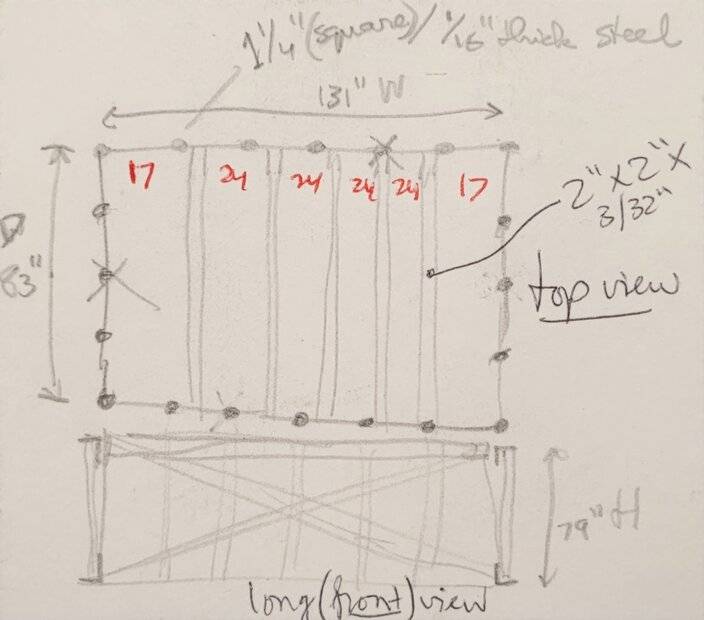 1 1/4" (square) / 1/16" thick steel
131" W
17 24 24 24 24 17
2" x 2" x
3/32"
D
83"
top view
79" H
long (front) view